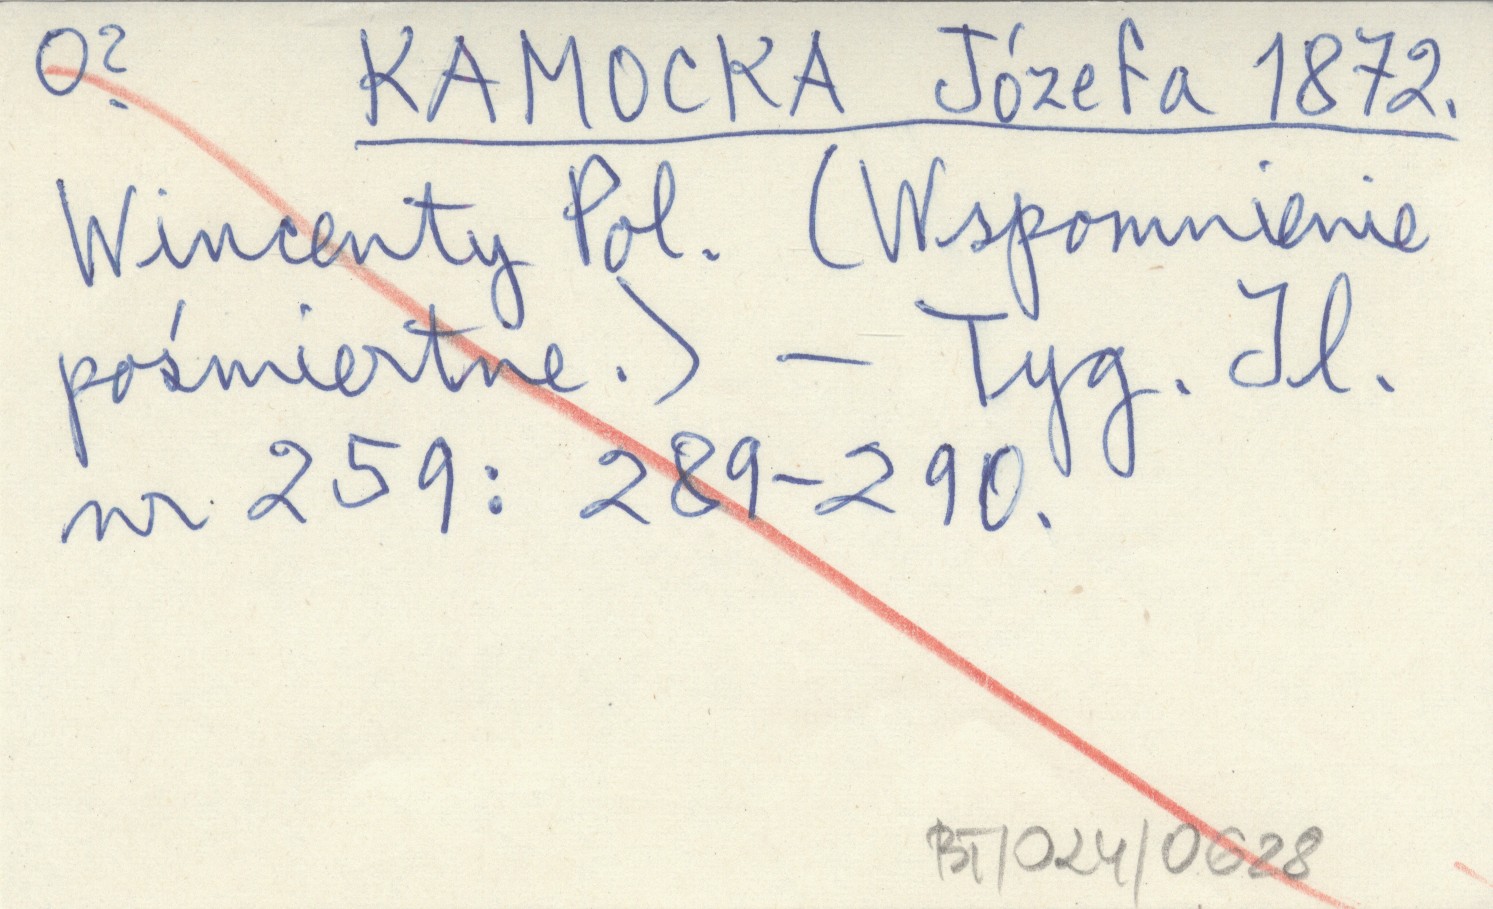 O? KAMOCKA Józefa 1872.
Wincenty Pol. (Wspomnienie
pośmiertne.) — Tyg. Il.
nr 259: 289-290.
BT/024/0628